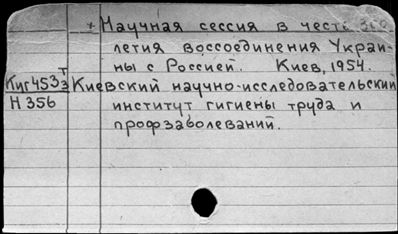 + Научная сессия в честь 300
летия воссоединения Украи-
ны с Россией. Киев, 1954.
Киг453 т/з Киевский научно-исследовательский
Н 356 институт гигиены труда и
профзаболеваний.